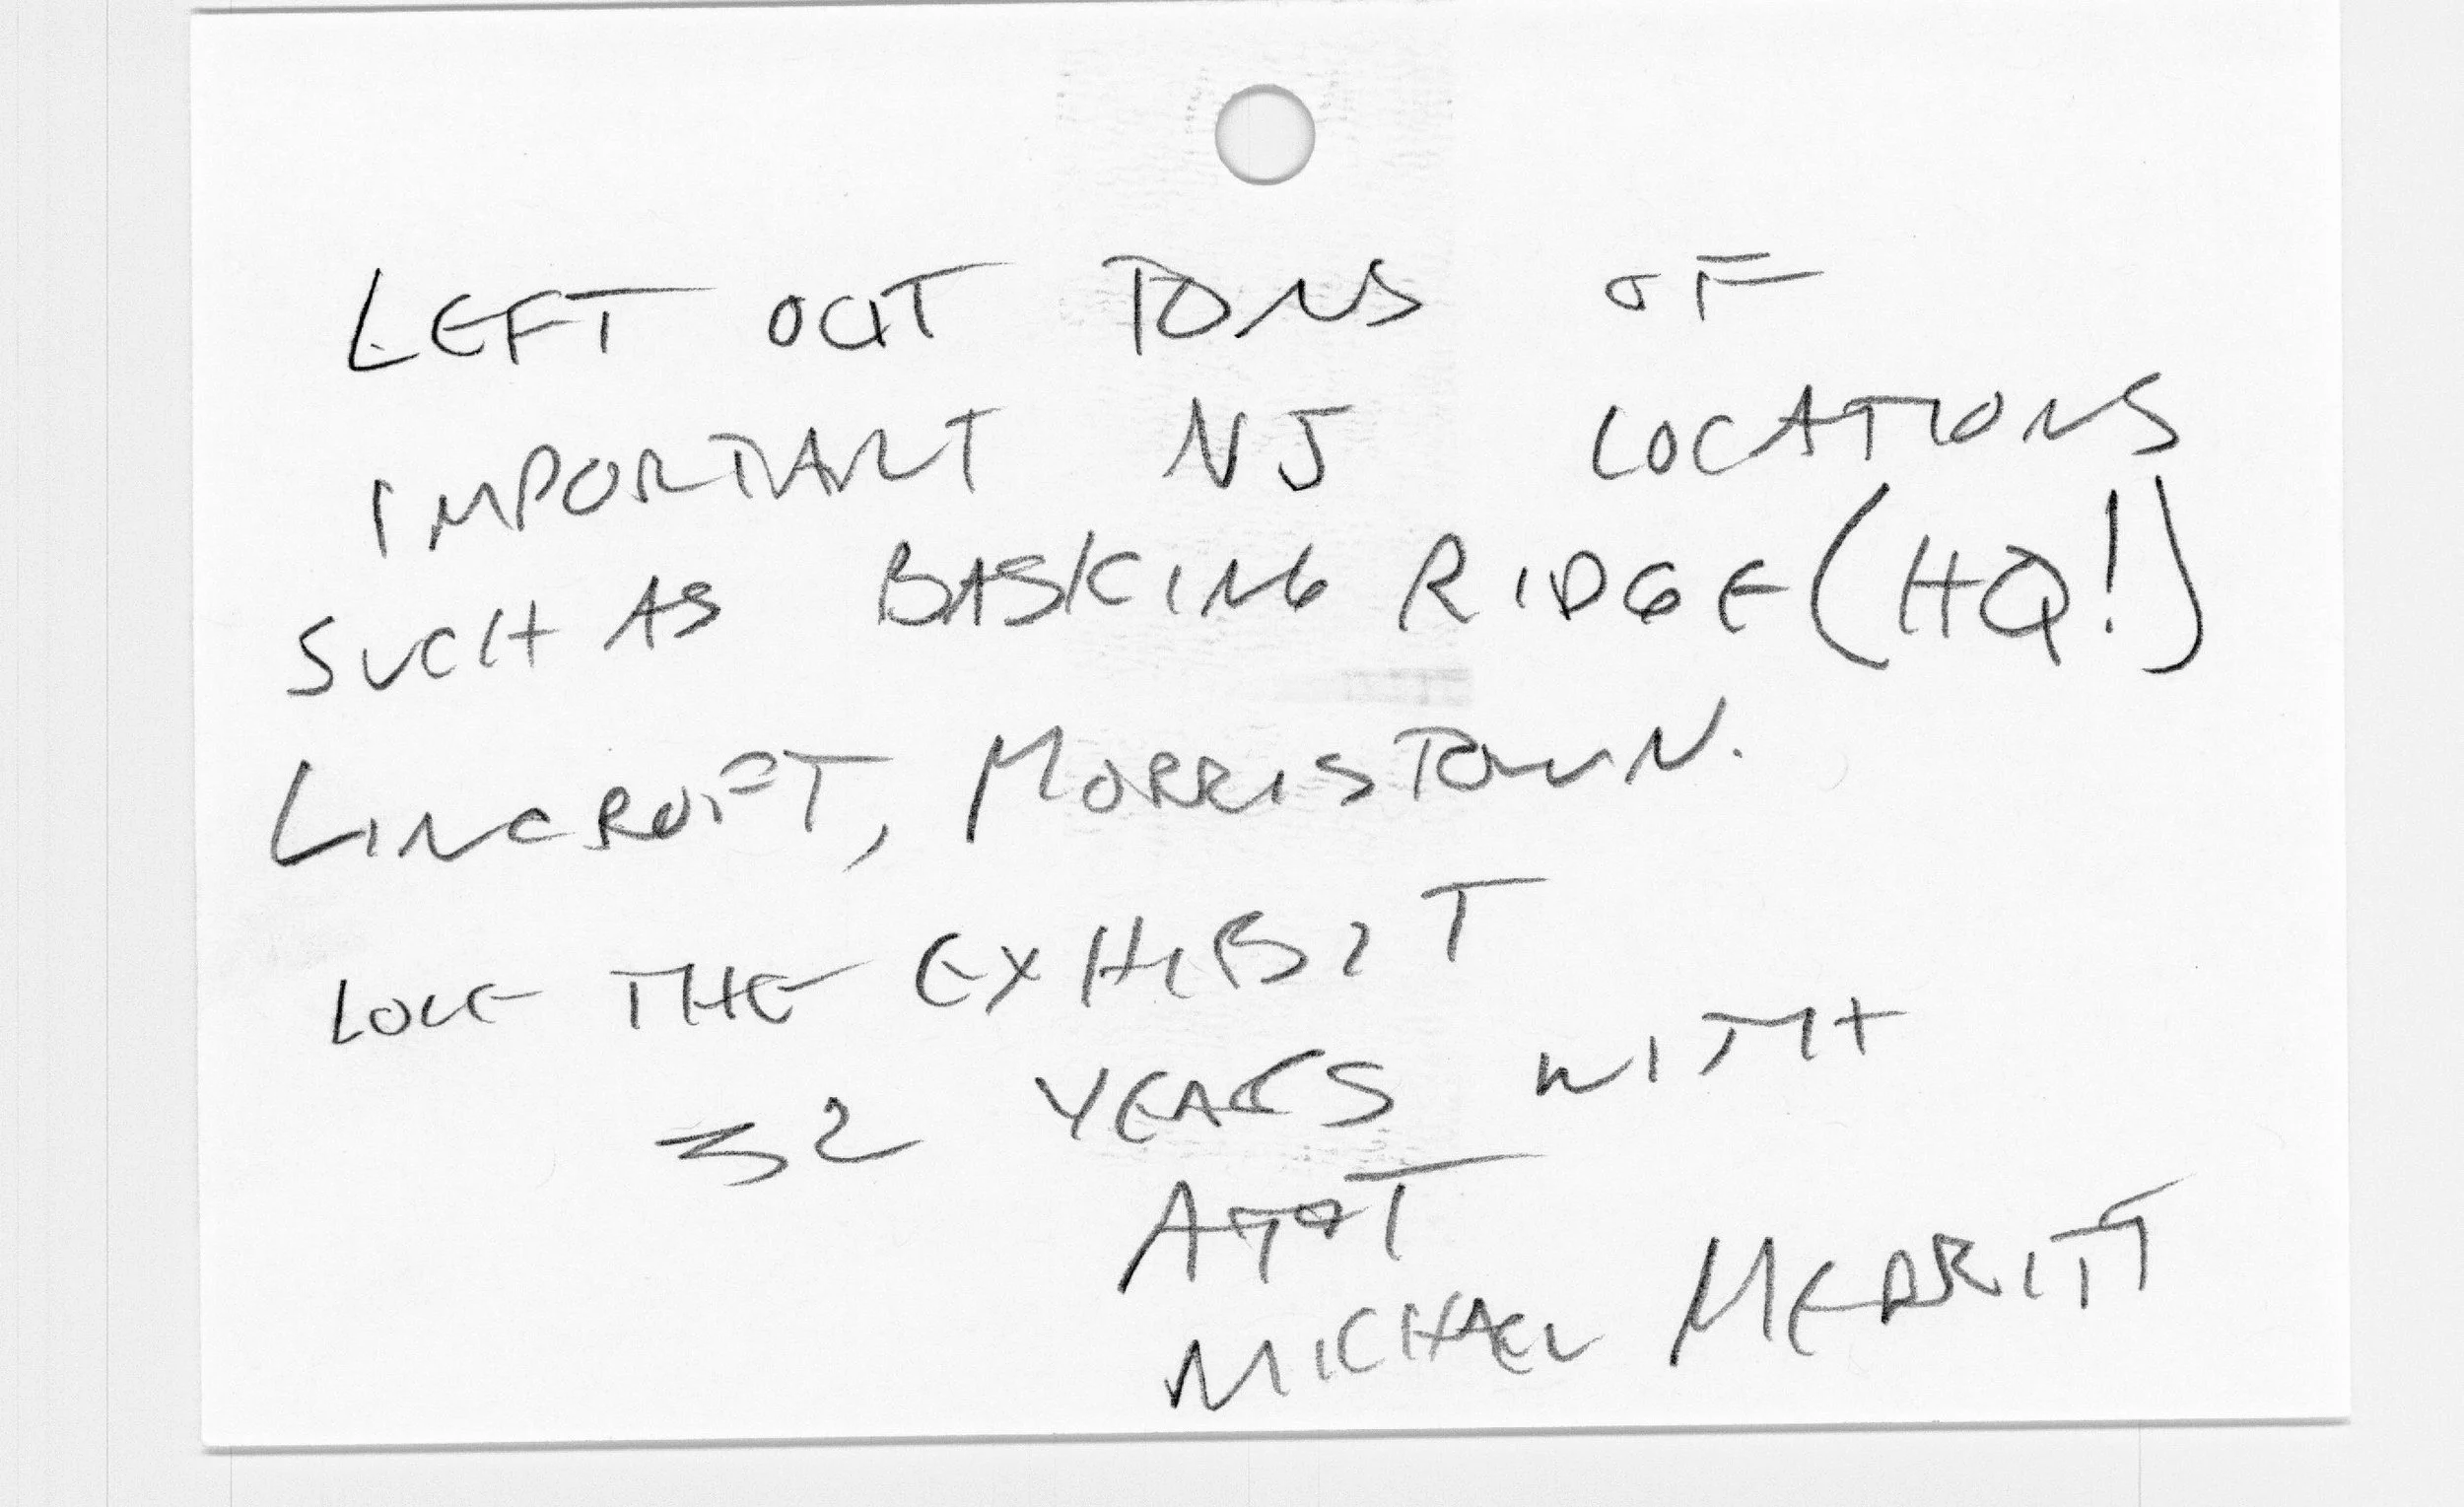 LEFT OUT TONS OF
IMPORTANT NJ LOCATIONS
SUCH AS BASKING RIDGE (HQ!)
LINCROFT, MORRISTOWN.
LOVE THE EXHIBIT
32 YEARS WITH
AT&T
MICHAEL MERRITT